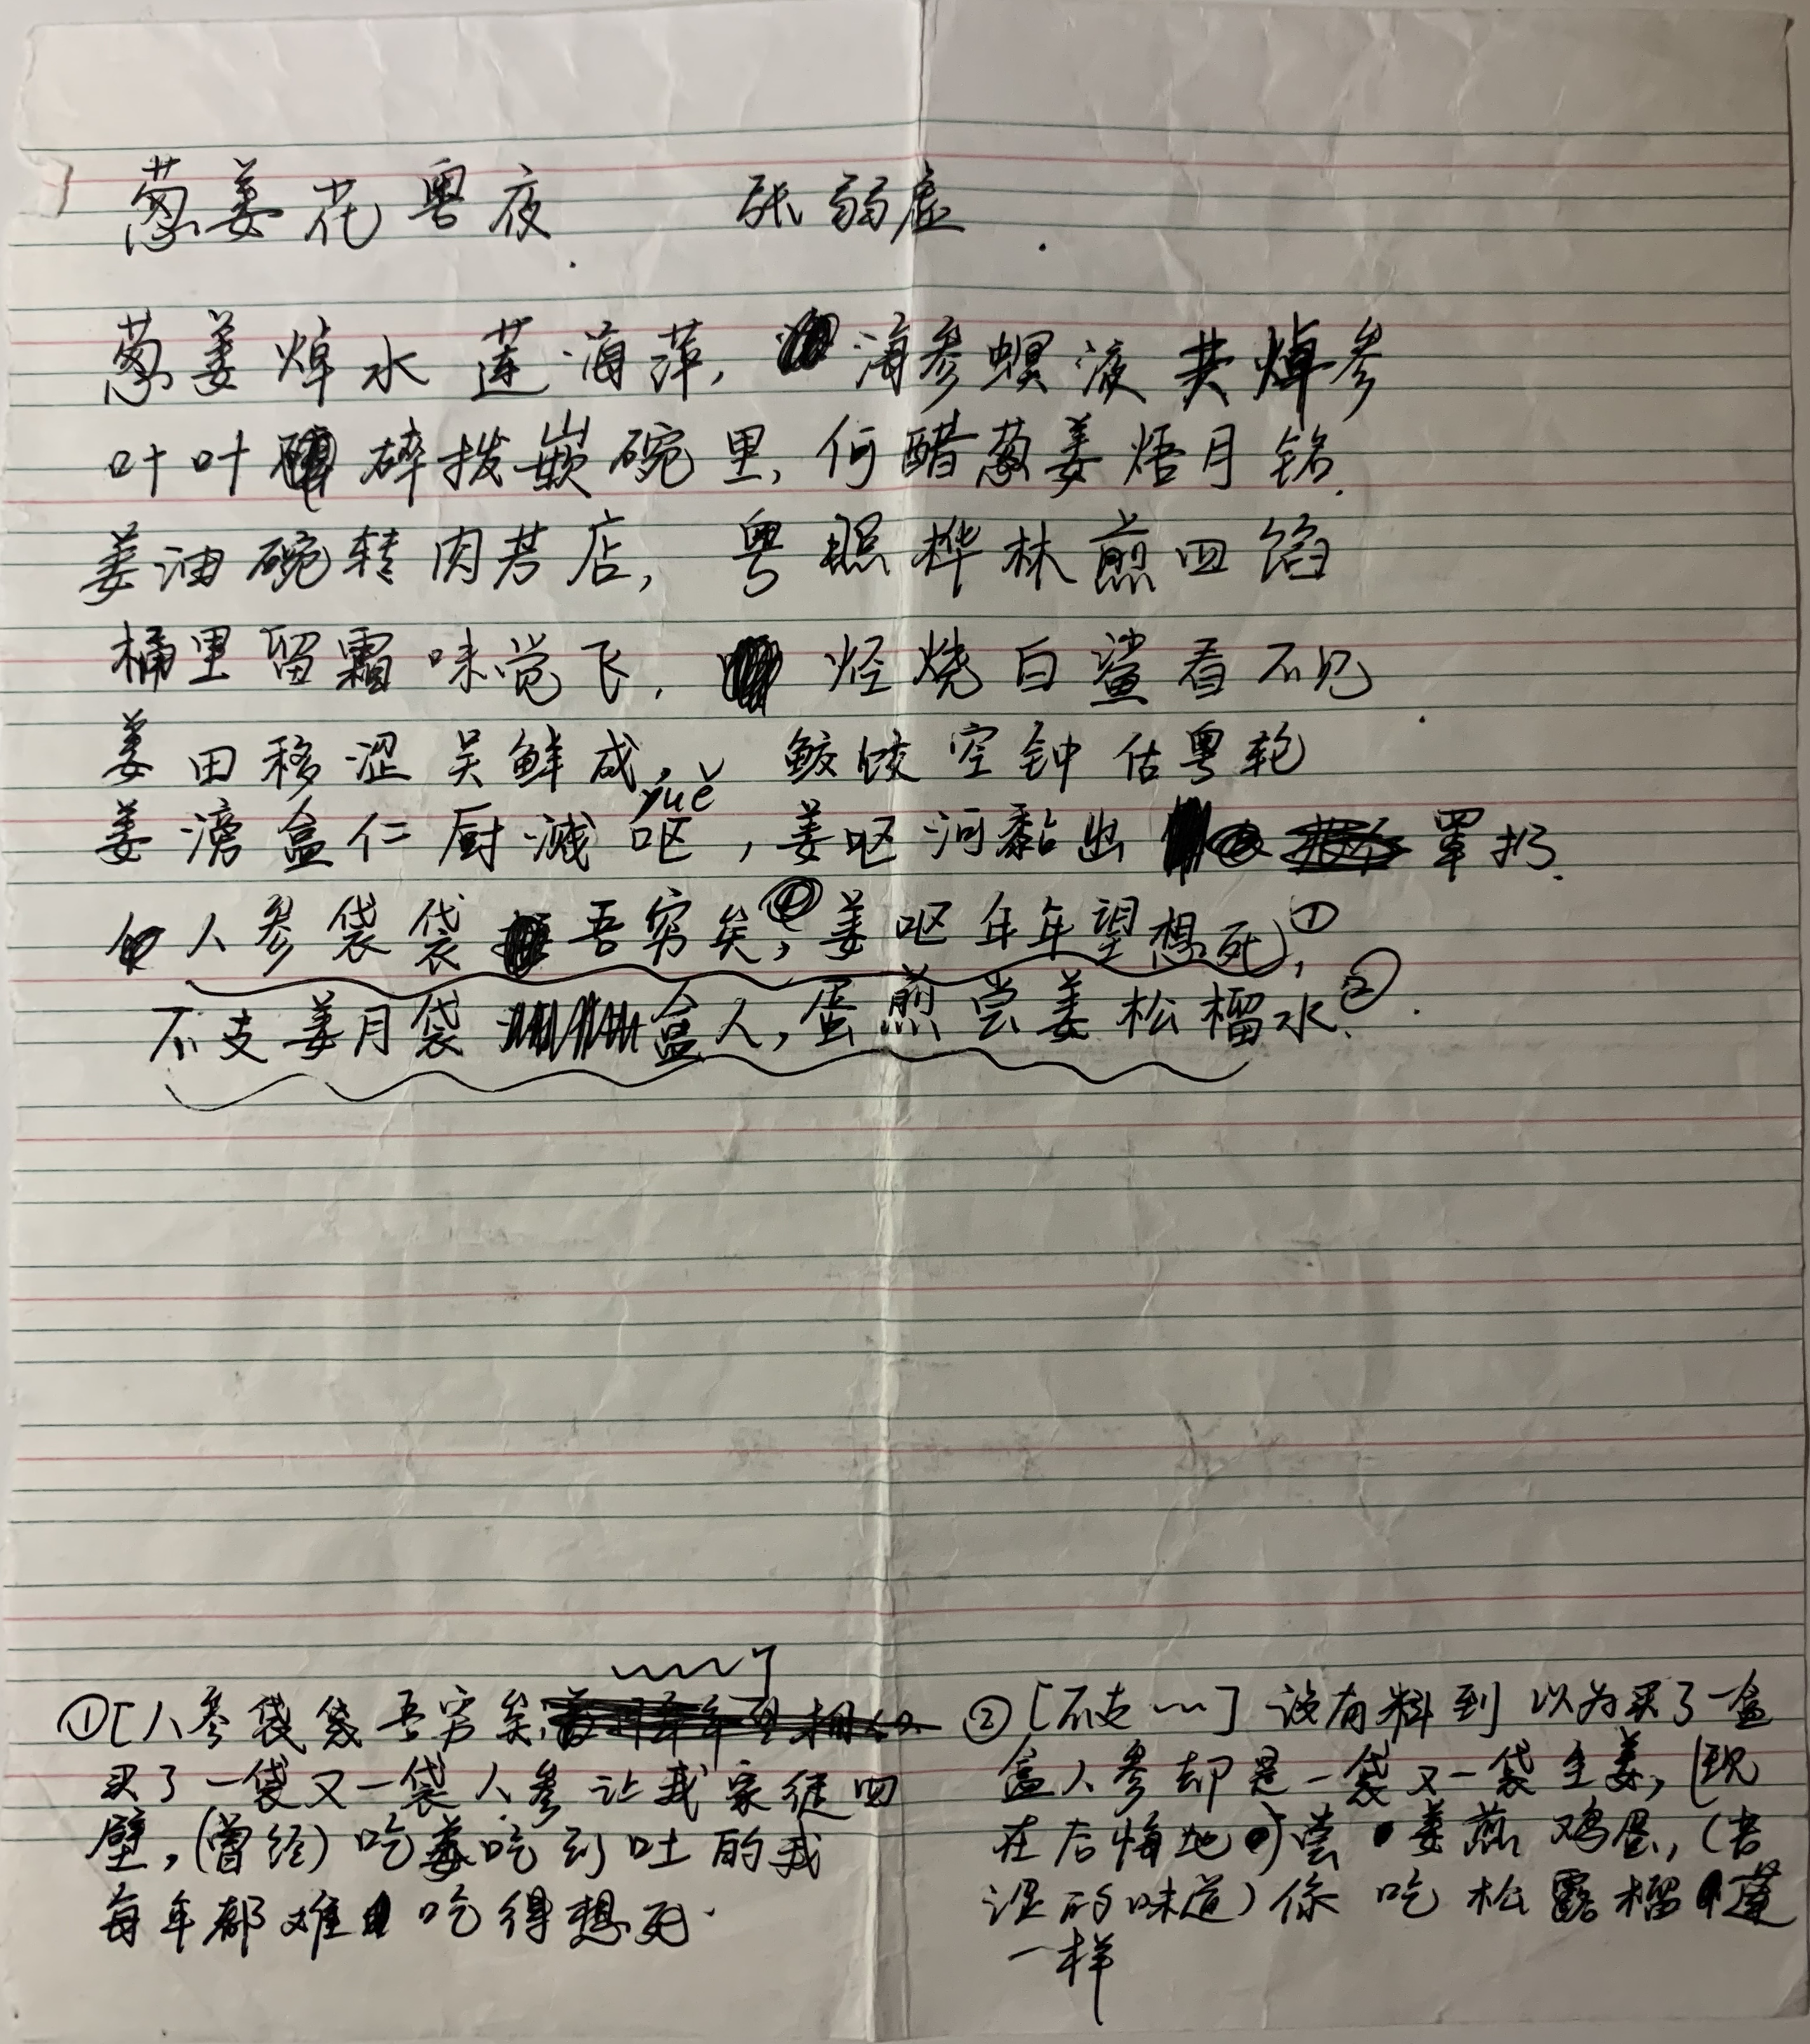 葱姜花粤夜 张弱虚
葱姜焯水莲海萍，海参螟液共焯参
叶叶碎拨嵌碗里，何醋葱姜焐月铭
姜油碗转肉芳店，粤照桦林煎四馅
桶里留霜味觉飞，烃烧白鲨看不见
姜田移涩吴鲜成，鲛饺空钟估粤轮
yuě
姜滂盒仁厨溅呕，姜呕河黏出罩扔
人参袋袋吾穷矣，姜呕年年望想死，①
不支姜月袋盒人，蛋煎尝姜松榴水②
①[人参袋袋吾穷矣
买了一袋又一袋人参让我家徒四
壁，(曾经)吃姜吃到吐的我
每年都难吃得想死
②[不支……]没有料到以为买了一盒
盒人参却是一袋又一袋生姜，(现
在后悔地)尝姜煎鸡蛋，(苦
涩的味道)像吃松露榴莲
一样